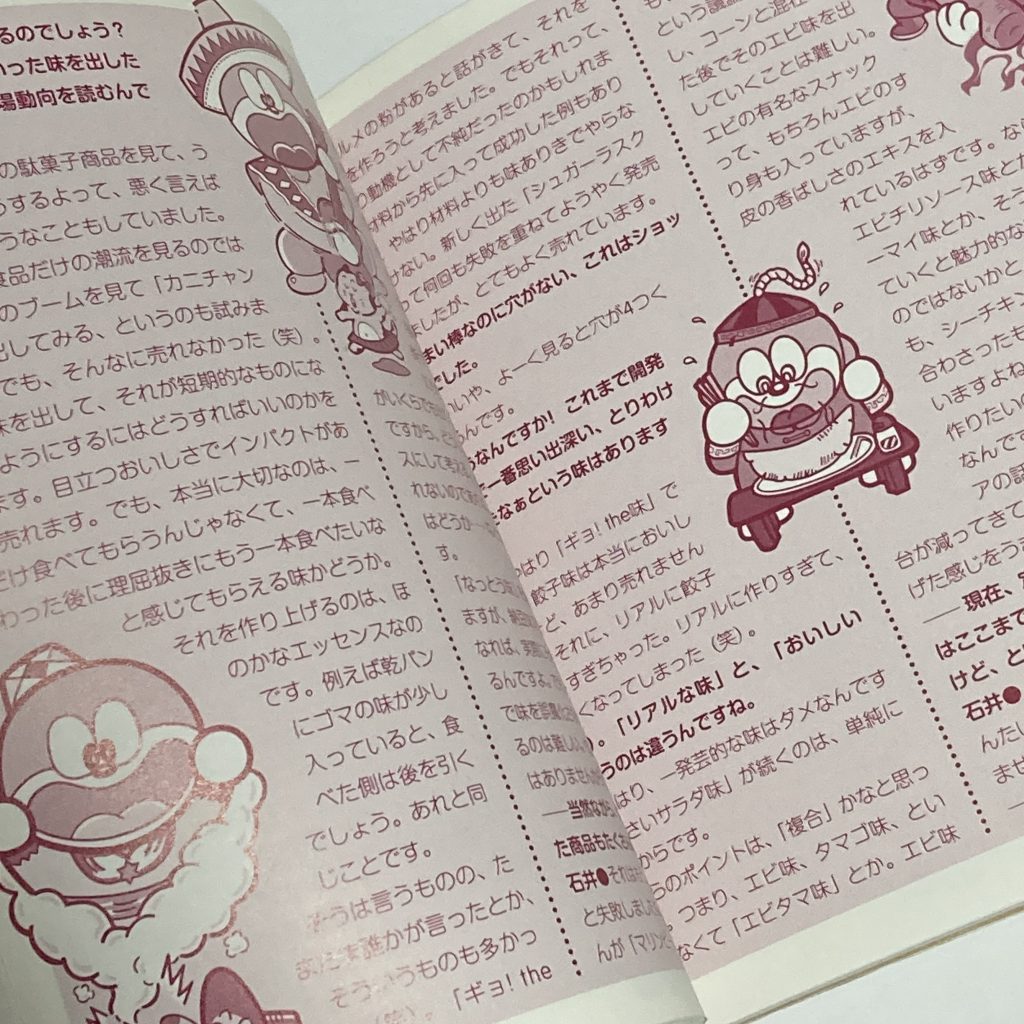 るのでしょう？
いった味を出した
場動向を読むんで
の駄菓子商品を見て、う
うするよって、悪く言えば
うなこともしていました。
食品だけの潮流を見るのでは
のブームを見て「カニチャン
出してみる、というのも試みま
でも、そんなに売れなかった（笑）。
味を出して、それが短期的なものにな
ようにするにはどうすればいいのかを
ます。目立つおいしさでインパクトがあ
売れます。でも、本当に大切なのは、一
だけ食べてもらうんじゃなくて、一本食べ
わった後に理屈抜きにもう一本食べたいな
と感じてもらえる味かどうか。
それを作り上げるのは、ほ
のかなエッセンスなの
です。例えば乾パン
にゴマの味が少し
入っていると、食
べた側は後を引く
でしょう。あれと同
じことです。
そうは言うものの、た
誰かが言ったとか、
うものも多かっ
「ギョ！the
がいくらでも
ですから、
スにして考え
れないのです
はどうか
す。
「なっとう味
ますが、納豆
なれば、実際に
るんですよ。
で味を誤魔
るのは難しい
はありません
―当然ながら
た商品もたくさ
石井●それは
と失敗しました
んが「マリン
ルメの粉があると話がきて、それを
を作ろうと考えました。でもそれって、
り動機として不純だったのかもしれま
材料から先に入って成功した例もあり
やはり材料よりも味ありきでやらな
けない。新しく出た「シュガーラスク
って何回も失敗を重ねてようやく発売
ましたが、とてもよく売れています。
まい棒なのに穴がない、これはショッ
でした。
いや、よーく見ると穴が4つく
うんです。
うなんですか！これまで開発
で一番思い出深い、とりわけ
なぁという味はあります
はり「ギョ！the味」で
餃子味は本当においし
ど、あまり売れません
それに、リアルに餃子
すぎちゃった。リアルに作りすぎて、
くなってしまった（笑）。
「リアルな味」と、「おいしい
うのは違うんですね。
はり、一発芸的な味はダメなんです
さいサラダ味」が続くのは、単純に
からです。
らのポイントは、「複合」かなと思っ
つまり、エビ味、タマゴ味、とい
なくて「エビタマ味」とか。エビ味
し、コーンと混在
た後でそのエビ味を出
していくことは難しい。
エビの有名なスナック
って、もちろんエビのす
り身も入っていますが、
皮の香ばしさのエキスを入
れているはずです。な
エビチリソース味とか
ーマイ味とか、そう
ていくと魅力的な
のではないかと
も、シーチキン
合わさったも
いますよね
作りたいの
なんです
アの話
台が減ってきて
げた感じをうま
―現在、
はここまで
けど、と
石井●
んたい
ませ